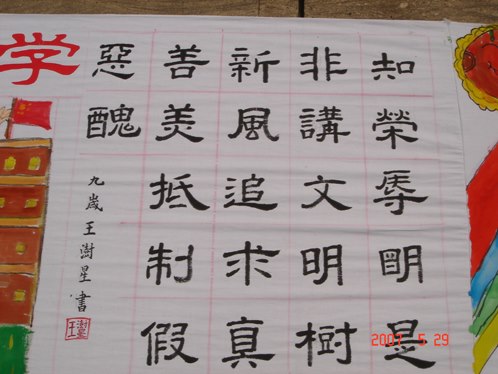 知榮辱眀是
非講文明樹
新風追求真
善美抵制假
惡醜
九歲王澍星書
学
2007 5 29